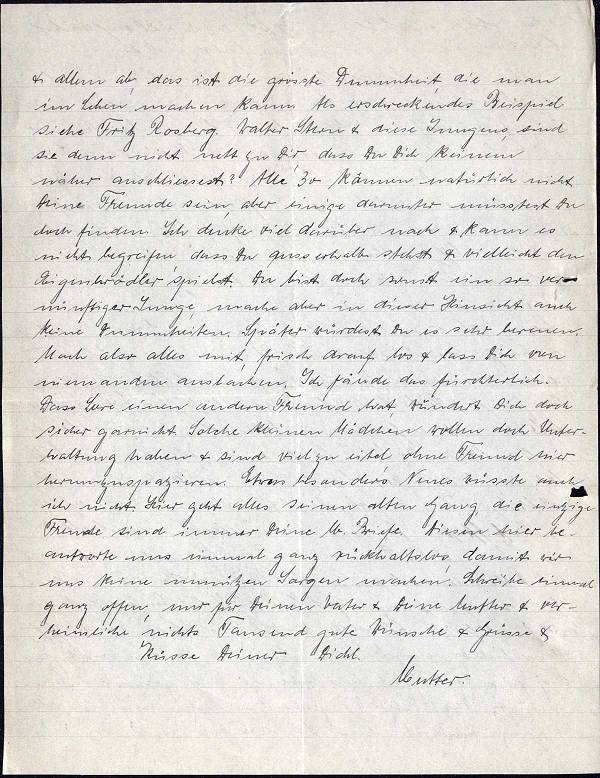 & allem ab, das ist die grösste Dummheit, die man
im Leben machen kann. Als erschreckendes Beispiel
siehe Fritz Rosberg. Walter Stern & diese Jungens, sind
sie denn nicht nett zu Dir, dass Du Dich keinem
näher anschliessest? Alle 30 können natürlich nicht
Deine Freunde sein, aber einige darunter müsstest Du
doch finden. Ich denke viel darüber nach & kann es
nicht begreifen, dass Du ausserhalb stehst & vielleicht den
Eigenbrödler spielst. Du bist doch sonst ein so ver-
nünftiger Junge, mache aber in dieser Hinsicht auch
keine Dummheiten. Später würdest Du es sehr bereuen.
Mach also alles mit, frisch darauf los & lass Dich von
niemandem auslachen. Ich fände das fürchterlich.
Dass Lore einen andern Freund hat, wundert Dich doch
sicher garnicht. Solche kleinen Mädchen wollen doch Unter-
haltung haben & sind viel zu eitel ohne Freund hier
herumzuspazieren. Etwas besonders Neues wüsste auch
ich nicht. Hier geht alles seinen alten Gang, die einzige
Freude sind immer Deine lb. Briefe. Diesen hier be-
antworte uns einmal ganz rückhaltslos, damit wir
uns keine unnützen Sorgen machen. Schreibe einmal
ganz offen, nur für Deinen Vater & Deine Mutter & ver-
heimliche nichts. Tausend gute Wünsche & Grüsse &
Küsse Deiner Dichl.
Mutter.